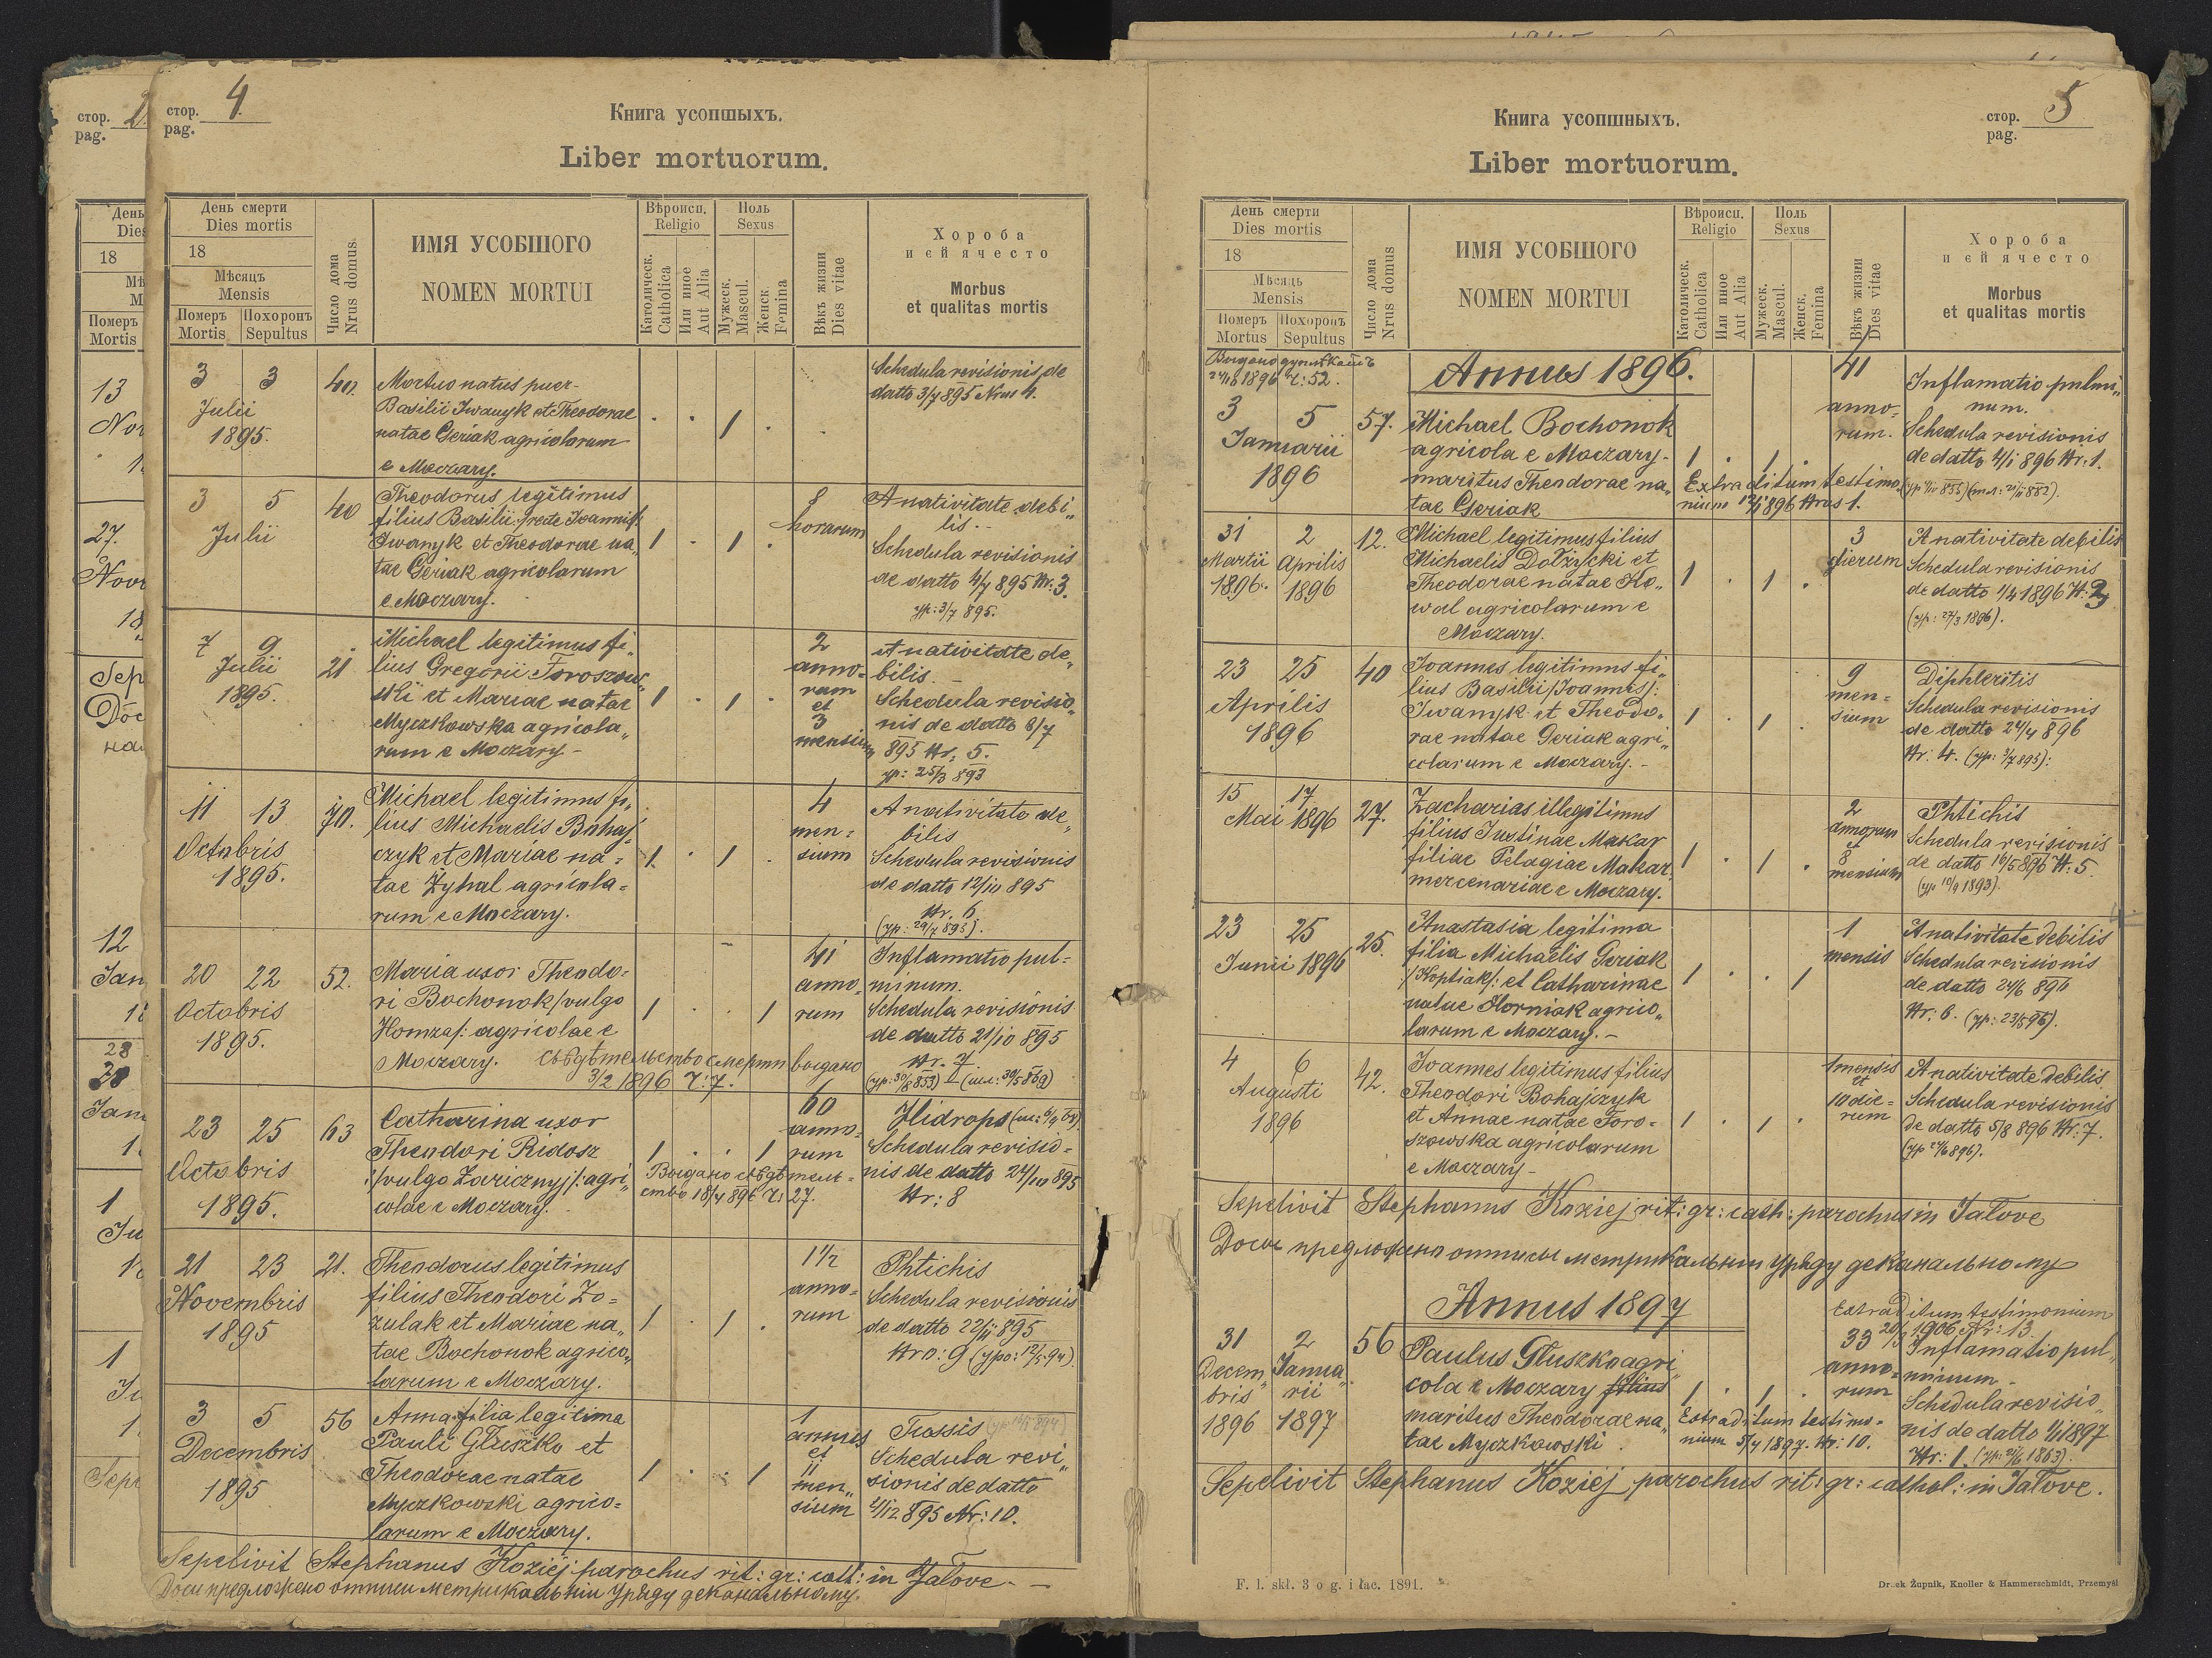 стор. 2.
pag.
День
Dies
18
Мѣ
M
Померъ
Mortis
13
Nov
27.
Nov
18
Sep
Дос
на
12
Jan
28
Jan
1
Ju
1
Ju
1
Sepe
стор. 4.
pag.
Книга усопшыхъ.
Liber mortuorum.
День смерти
Dies mortis
18
Мѣсяцъ
Mensis
Померъ
Mortis
Похоронъ
Sepultus
Число дома
Nrus domus.
ИМЯ УСОБШОГО
NOMEN MORTUI
Вѣроисп.
Religio
Католическ.
Catholica
Или иное
Aut Alia
Поль
Sexus
Мужеск.
Mascul.
Женск.
Femina
Вѣкъ жизни
Dies vitae
Хороба
и єй ячесто
Morbus
et qualitas mortis
3 3
Julii
1895.
40.
Mortuo natus puer
Basilii Iwanyk et Theodorae
natae Geriak agricolarum
e Moczary.
1
Schedula revisionis de
datto 3/7 895 Nrus 4.
3 5
Julii
40
Theodorus legitimus
filius Basilii /:recte Joannis/:
Iwanyk et Theodorae na„
tae Geriak agricolarum
e Moczary.
1 1
8
horarum
A nativitate debi„
lis.
Schedula revisionis
de datto 4/7 895 Nr. 3.
ур: 3/7 895.
7 9
Julii
1895.
21
Michael legitimus fi„
lius Gregorii Toroszow„
ski et Mariae natae
Myczkowska agricola„
rum e Moczary
1 1
2
anno-
rum
et
3
mensium
A nativitate de„
bilis.
Schedula revisio„
nis de datto 8/7
895 Nr. 5.
ур: 25/3 893
11 13
Octobris
1895.
70.
Michael legitimus fi„
lius Michaelis Bohaj
czyk et Mariae na-
tae Żyhal agricola-
rum e Moczary.
1. 1
4
men-
sium
A nativitate de„
bilis
Schedula revisionis
de datto 12/10 895
Nr. 6
(ур: 29/7 895).
20 22
Octobris
1895.
52.
Maria uxor Theodo-
ri Bochonok /vulgo
Homza/: agricolae e
Moczary.
1 1
41
anno-
rum
Inflamatio pul-
minum.
Schedula revisionis
de datto 21/10 895
Nr. 7
(ур: 30/8 853) (шл: 30/5 869)
Свѣдѣтельство смерти выдано
3/2 1896 Ч: 7.
23 25
Octobris
1895.
63
Catharina uxor
Theodori Ridosz
/:vulgo Zaricznyj/: agri„
colae e Moczary.
1 1
60
anno-
rum
Hidrops
Schedula revisio-
nis de datto 24/10 895
Nr: 8
Выдано свѣдѣтель-
ство 18/4 896 Ч: 27.
21 23
Novembris
1895
21.
Theodorus legitimus
filius Theodori Zo-
zulak et Mariae na„
tae Bochonok agrico„
larum e Moczary.
1 1
1 1/2
anno-
rum
Phtichis
Schedula revisionis
de datto 22/11 895
Nro: 9
3 5
Decembris
1895
56
Anna filia legitima
Pauli Głuszko et
Theodorae natae
Myczkowski agrico-
larum e Moczary.
1 1
1
annus
et
11
men„
sium
Tussis
Schedula revi„
sionis de datto
4/12 895 Nr: 10.
Sepelivit Stephanus Koziej parochus rit: gr: cath: in Jałove.
Доси предложено отписи метрикальніи Урѧду деканальному.
стор. 5
pag.
Книга усопшныхъ.
Liber mortuorum.
День смерти
Dies mortis
18
Мѣсяць
Mensis
Померъ
Mortus
Похоронъ
Sepultus
Число дома
Nrus domus
ИМЯ УСОБШОГО
NOMEN MORTUI
Вѣроисп.
Religio
Католическ.
Catholica
Или иное
Aut Alia
Поль
Sexus
Мужеск.
Mascul.
Женск.
Femina
Вѣкъ жизни
Dies vitae
Хороба
и єй ячесто
Morbus
et qualitas mortis
1896 Ч: 52.
Annus 1896.
3 5
Januarii
1896
57.
Michael Bochonok
agricola e Moczary
maritus Theodorae na„
tae Geriak
1 1
41
anno-
rum.
Inflamatio pulmi„
num.
Schedula revisionis
de datto 4/1 896 Nr. 1.
Extraditum testimo-
nium 12/1 896 Nrus 1.
31 2
Martii Aprilis
1896. 1896
12.
Michael legitimus filius
Michaelis Dołżycki et
Theodorae natae Ko„
wal agricolarum e
Moczary.
1 1
3
dierum
A nativitate debilis
Schedula revisionis
de datto 1/4 1896 N. 3
(ур: 27/3 1896).
23 25
Aprilis
1896
40
Joannes legitimus fi„
lius Basilii /Joannis/:
Iwanyk et Theodo-
rae natae Geriak agri„
colarum e Moczary.
1 1
9
men-
sium
Diphteritis
Schedula revisionis
de datto 24/4 896
Nr. 4. (ур: 3/7 895):
15 17
Mai 1896
27.
Zacharias illegitimus
filius Justinae Makar
filiae Pelagiae Makar
mercenariae e Moczary.
1 1
2
annorum
et
8
mensium
Phtichis
Schedula revisionis
de datto 16/5 896 N: 5.
(ур 10/9 1893).
23 25
Junii 1896
25.
Anastasia legitima
filia Michaelis Geriak
/Koptiak/: et Catharinae
natae Horniak agrico„
larum e Moczary.
1 1
1
mensis
A nativitate debilis
Schedula revisionis
de datto 24/6 896
Nr. 6. (ур: 23/5 96).
4 6
Augusti
1896
42.
Joannes legitimus filius
Theodori Bohajczyk
et Annae natae Toro-
szowska agricolarum
e Moczary
1 1
1 mensis
et
10 die-
rum
A nativitate debilis
Schedula revisionis
de datto 5/8 896 Nr. 7.
(ур 24/6 896).
Sepelivit Stephanus Koziej rit: gr: cath: parochus in Jałove
Доси предложено отписи метрикальніи Урѧду деканальному
Annus 1897
31 2
Decem„ Janua„
bris rii
1896 1897
56
Paulus Głuszko agri„
cola e Moczary filius
maritus Theodorae na„
tae Myczkowski
1 1
Extraditum testimonium
1906 Nr: 13
33
anno-
rum
Inflamatio pul„
minum
Schedula revisio„
nis de datto 1/1 1897
Nr: 1.
Extraditum testimo-
nium 5/4 1897. Nr: 10.
Sepelivit Stephanus Koziej parochus rit: gr: cathol: in Jałove.
F. l. skł. 3 o g. i łac. 1891.
Druek Żupnik, Knoller & Hammerschmidt, Przemyśl